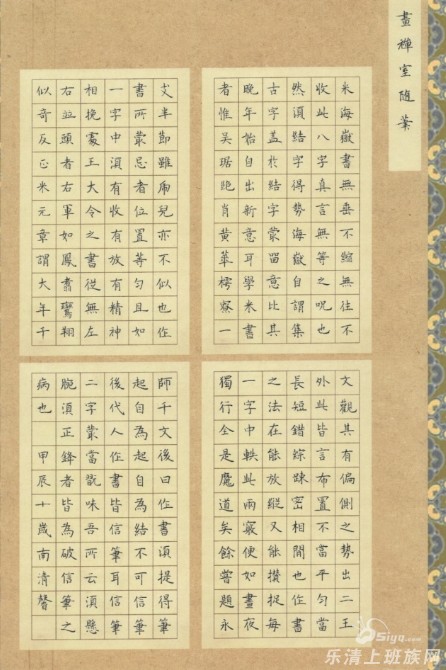 畫禪室隨筆
米海嶽書無垂不縮無往不
收此八字真言無等之呪也
然須結字得勢海嶽自謂集
古字蓋於結字最留意比其
晚年始自出新意耳學米書
者惟吳琚絕肖黃華樗寮一
支半節雖虎兒亦不似也作
書所最忌者位置等勻且如
一字中須有收有放有精神
相挽處王大令之書從無左
右並頭者右軍如鳳翥鸞翔
似奇反正米元章謂大年千
文觀其有偏側之勢出二王
外此皆言布置不當平勻當
長短錯綜疎密相間也作書
之法在能放縱又能攢捉每
一字中軼此兩竅便如晝夜
獨行全是魔道矣餘嘗題永
師千文後曰作書須提得筆
起自為起自為結不可信筆
後代人作書皆信筆耳信筆
二字最當翫味吾所云須懸
腕須正鋒者皆為破信筆之
病也 甲辰十歲南清聲
乐清上班族网